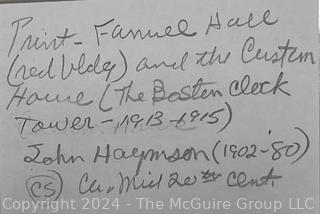 Print - Fanuel Hall
(red bldg) and the Custom
House (The Boston Clock
Tower - 1913-1915)
John Haymson (1902-'80)
(CS) Ca. Mid 20th Cent.
Copyright 2024 - The McGuire Group LLC